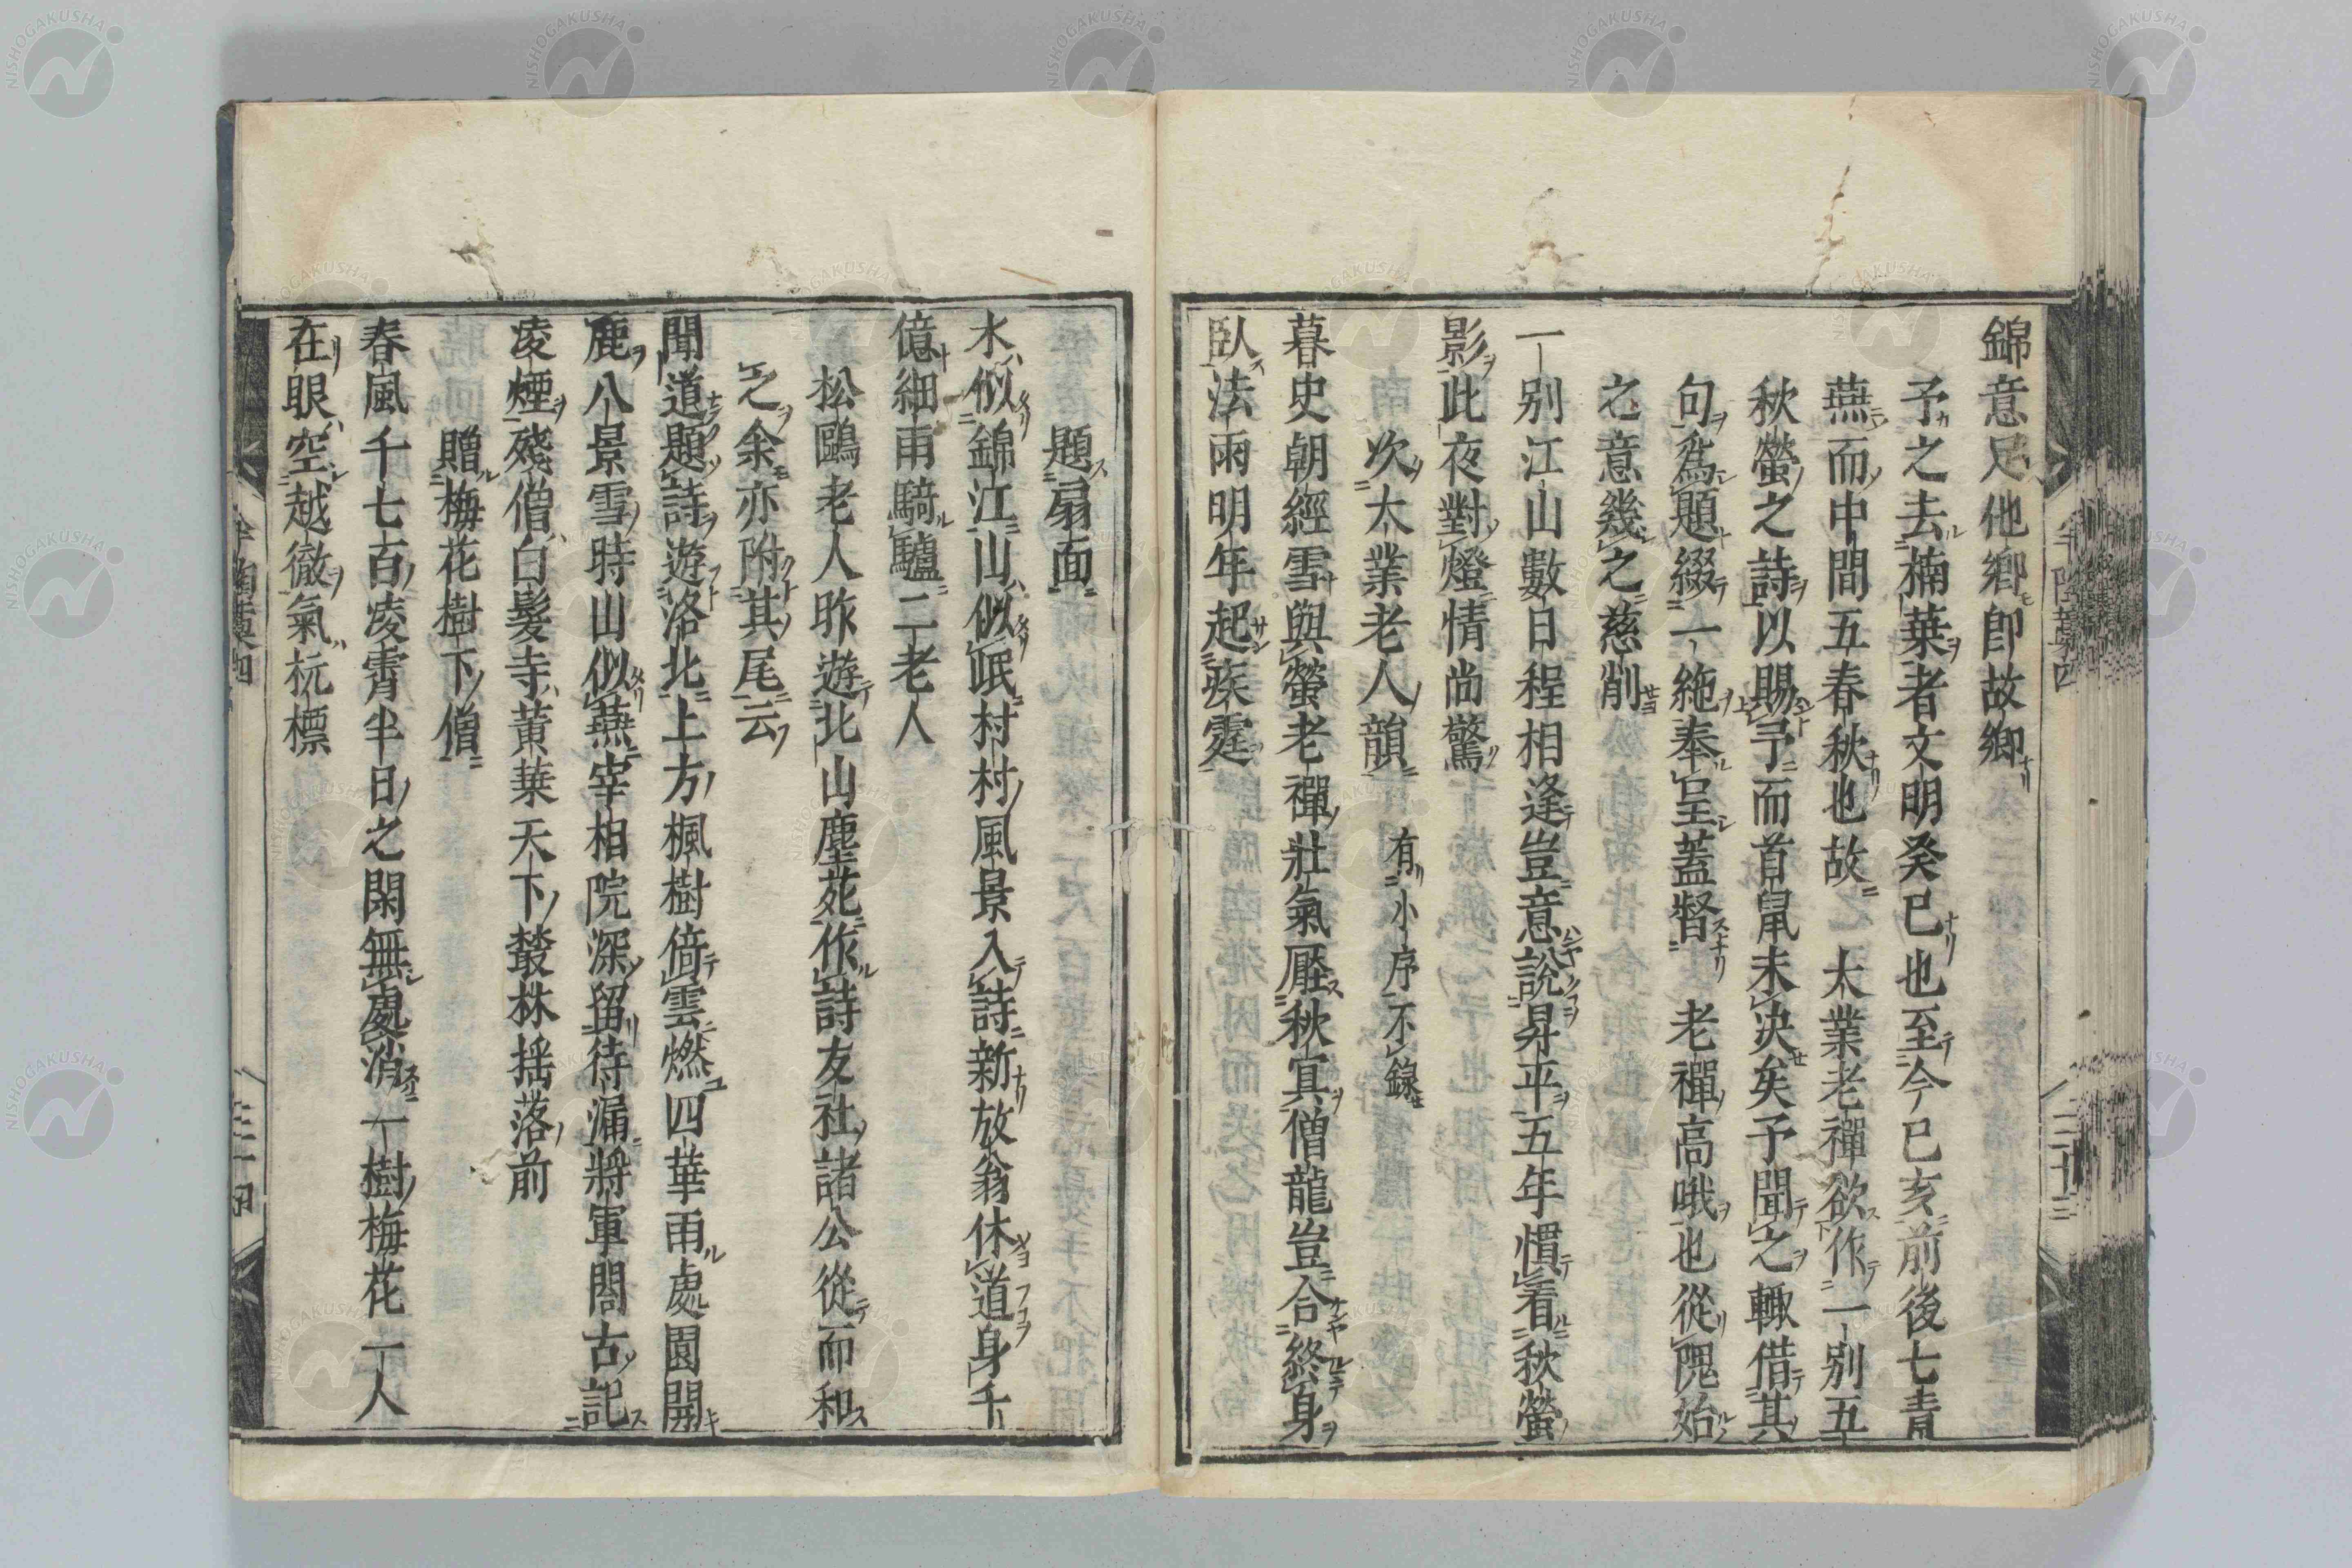 錦意足他鄉卽故鄉
予之去楠葉者文明癸巳也至今己亥前後七青
燕而中間五春秋也故之太業老禪欲作一別五
秋螢之詩以賜予而首鼠未決矣予聞之輙借其
句爲題綴一絶奉呈蓋督老禪高哦也從隗始
之意幾之慈削
一別江山數日程相逢豈意說昇平五年慣看秋螢
影此夜對燈情尚驚
次太業老人韻 有小序不錄
暮史朝經雪與螢老禪壯氣壓秋冥僧龍豈合終身
臥法雨明年起疾霆
題扇面
水似錦江山似岷村村風景入詩新放翁休道身千
億細雨騎驢二老人
松鷗老人昨遊北山塵苑作詩友社諸公從而和
之余亦附其尾云
聞道題詩遊洛北上方楓樹倚雲燃四華雨處園開
鹿八景雪時山似燕宰相院深留待漏將軍閣古記
凌煙殘僧白髮寺黃葉天下叢林揺落前
贈梅花樹下僧
春風千七百凌霄半日之閑無處消一樹梅花一人
在眼空越徹氣杬標